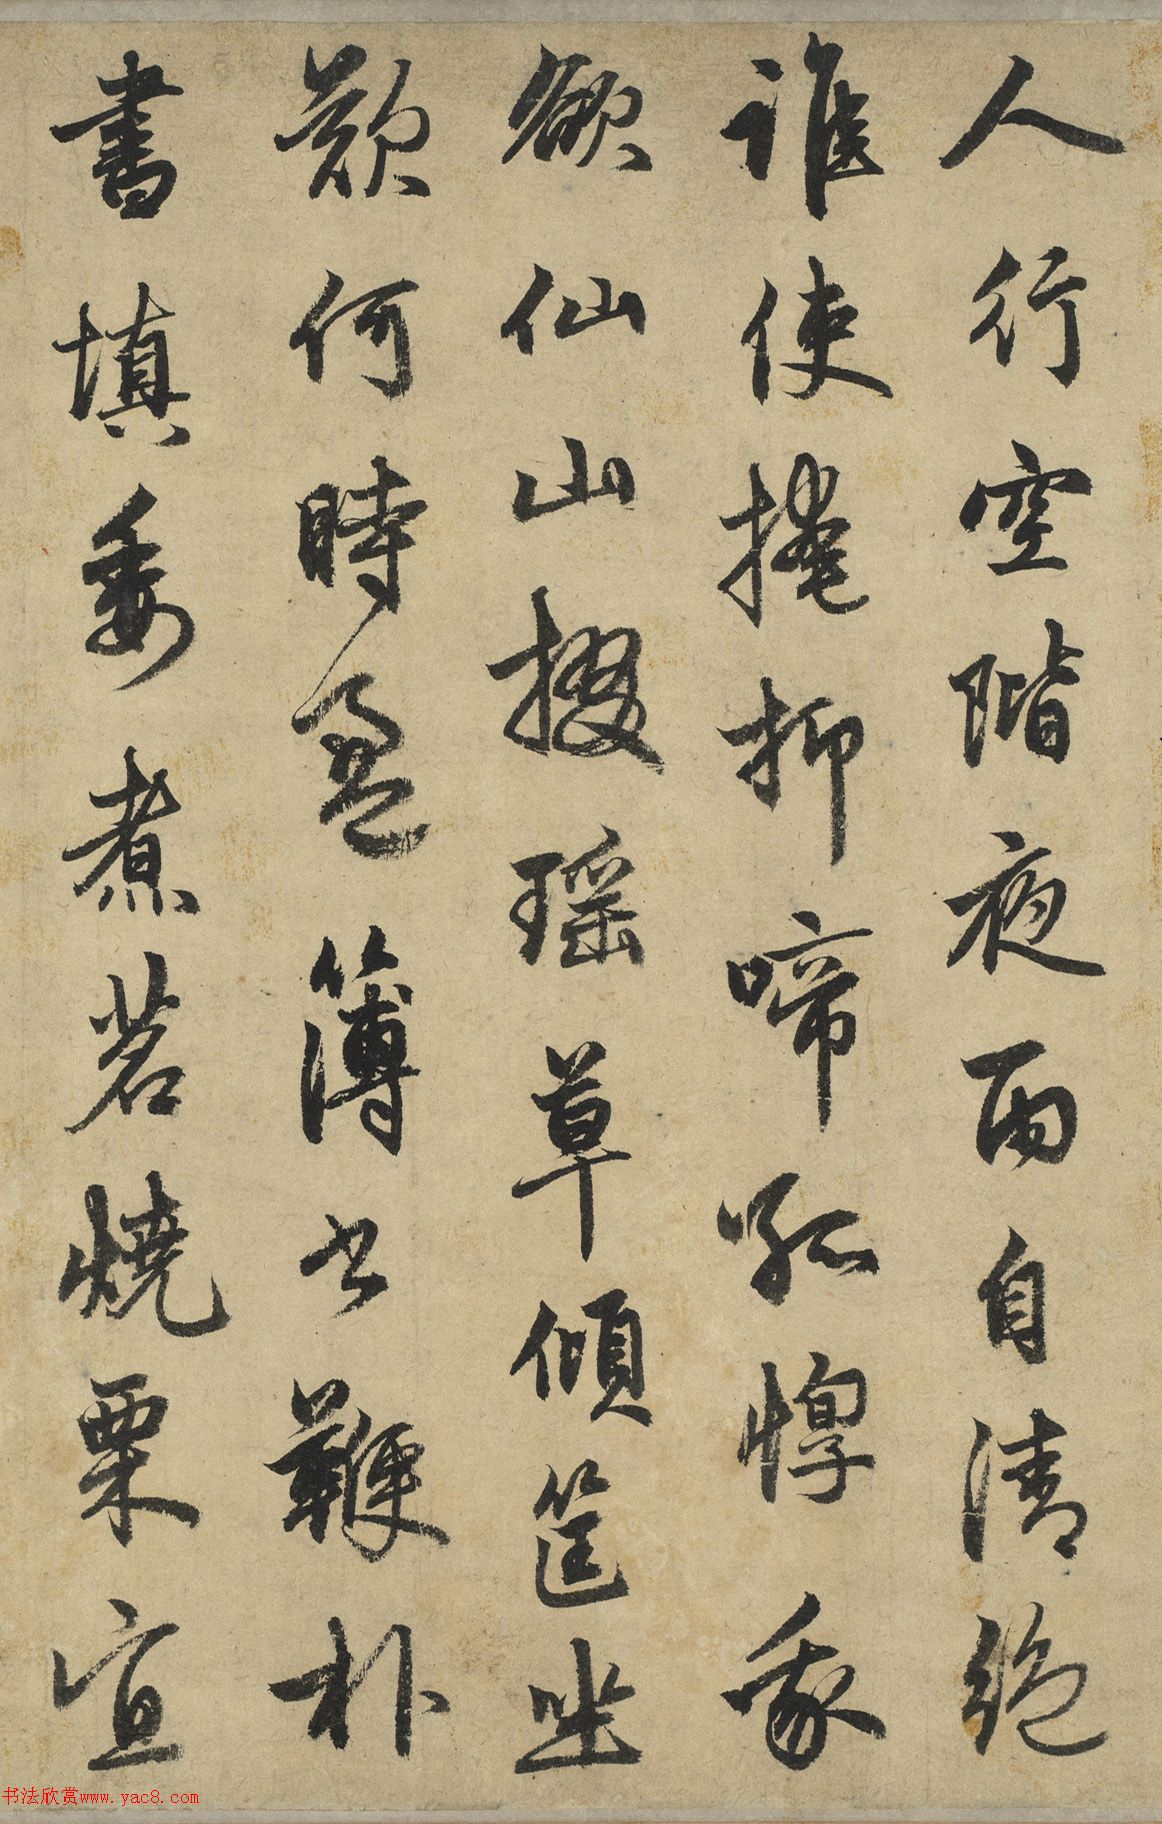 人行空階夜雨自清絕
誰使掩抑啼孤惸我
欲仙山掇瑤草傾筐坐
歎何時盈簿書鞭朴
晝填委煮茗燒栗宜
书法欣赏www.yac8.com